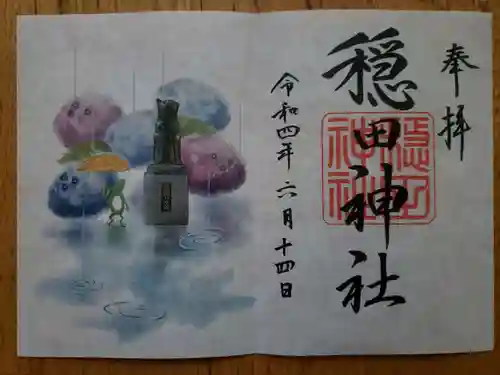 奉拝
穏田神社
穏田神社
令和四年六月十四日